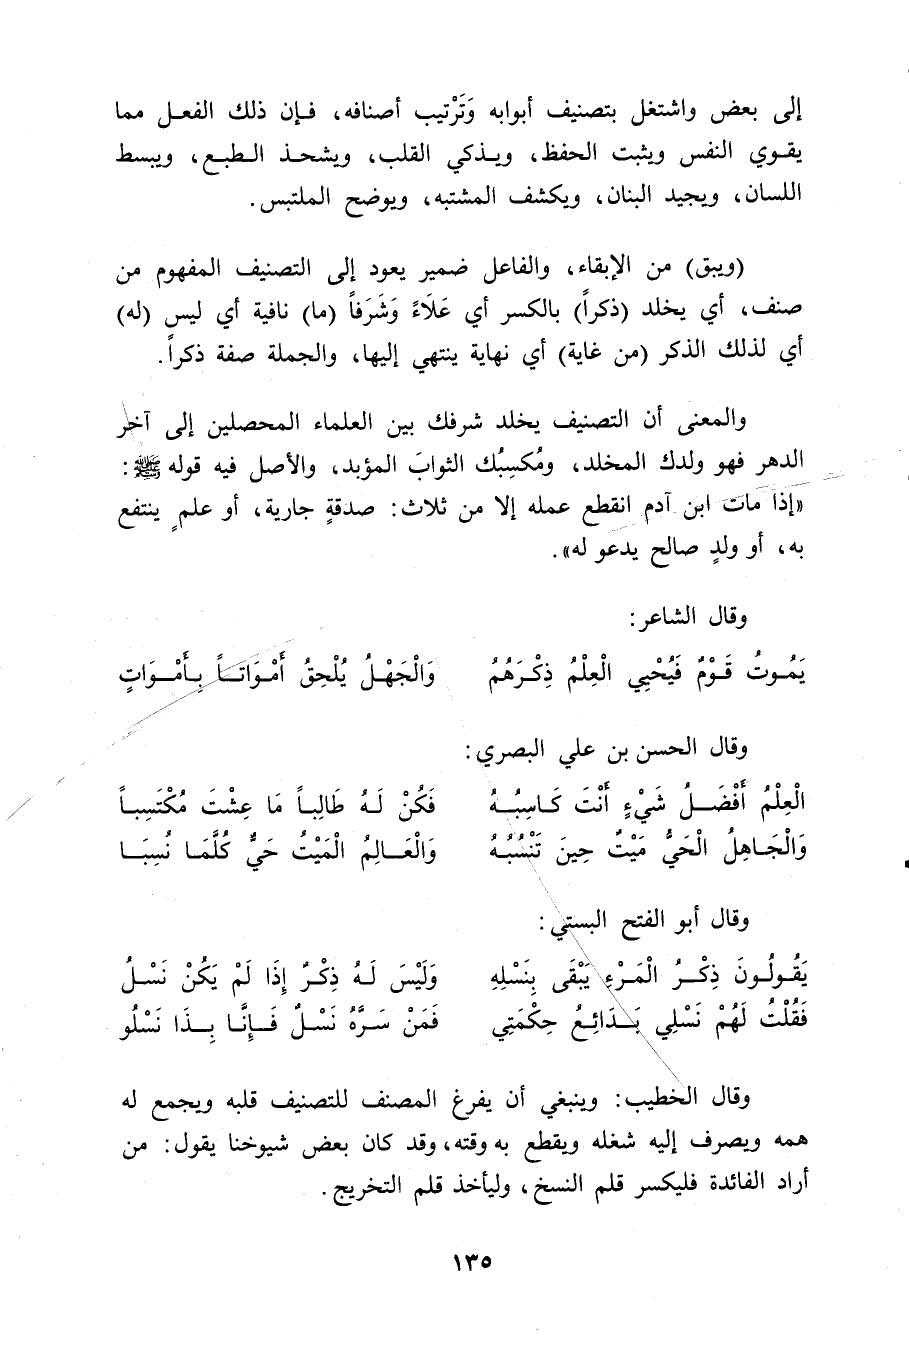 إلى بعض واشتغل بتصنيف أبوابه وَتَرْتيب أصنافه، فـإن ذلك الفعـل مما
يقـوي النفس ويثبت الحفظ، ويـذكي القلب، ويشحـذ الـطبـع، ويبسط
اللسان، ويجيد البنان، ويكشف المشتبه، ويوضح الملتبس.
(ويبق) من الإبقاء، والفاعل ضمير يعود إلى التصنيف المفهوم من
صنف، أي يخلد (ذكراً) بالكسر أي عَلَاءً وَشَرَفاً (ما) نافية أي ليس (له)
أي لذلك الذكر (من غاية) أي نهاية ينتهي إليها، والجملة صفة ذكراً.
والمعنى أن التصنيف يخلد شرفك بين العلماء المحصلين إلى آخر
الدهر فهو ولدك المخلد، ومُكسِبُك الثوابَ المؤبد، والأصل فيه قوله ﷺ:
«إذا مات ابن آدم انقطع عمله إلا من ثلاث: صدقةٍ جارية، أو علمٍ ينتفع
به، أو ولدٍ صالح يدعو له».
وقال الشاعر:
يَمُـوتُ قَـوْمٌ فَيُحْيِي الْعِلْمُ ذِكْـرَهُمُ وَالْجَهْـلُ يُلْحِقُ أَمْـوَاتـاً بِـأَمْـوَاتِ
وقال الحسن بن علي البصري:
الْعِلْمُ أَفْضَـلُ شَيْءٍ أَنْتَ كَـاسِبُـهُ فَكُنْ لَـهُ طَالِبـاً مَا عِشْتَ مُكْتَسِبـاً
وَالْجَـاهِلُ الْحَيُّ مَيْتٌ حِينَ تَنْسُبُـهُ وَالْعَـالِمُ الْمَيْتُ حَيٌّ كُلَّمَـا نُسِبَـا
وقال أبو الفتح البستي:
يَقُـولُـونَ ذِكْـرُ الْمَرْءِ يَبْقَى بِنَسْلِهِ وَلَيْسَ لَـهُ ذِكْرٌ إِذَا لَمْ يَكُنْ نَسْـلُ
فَقُلْتُ لَهُمْ نَسْلِي بَـدَائِعُ حِكْمَتِي فَمَنْ سَـرَّهُ نَسْلٌ فَـإِنَّـا بِـذَا نَسْلُو
وقال الخطيب: وينبغي أن يفرغ المصنف للتصنيف قلبه ويجمع له
همه ويصرف إليه شغله ويقطع به وقته، وقد كان بعض شيوخنا يقول: من
أراد الفائدة فليكسر قلم النسخ، وليأخذ قلم التخريج.
١٣٥